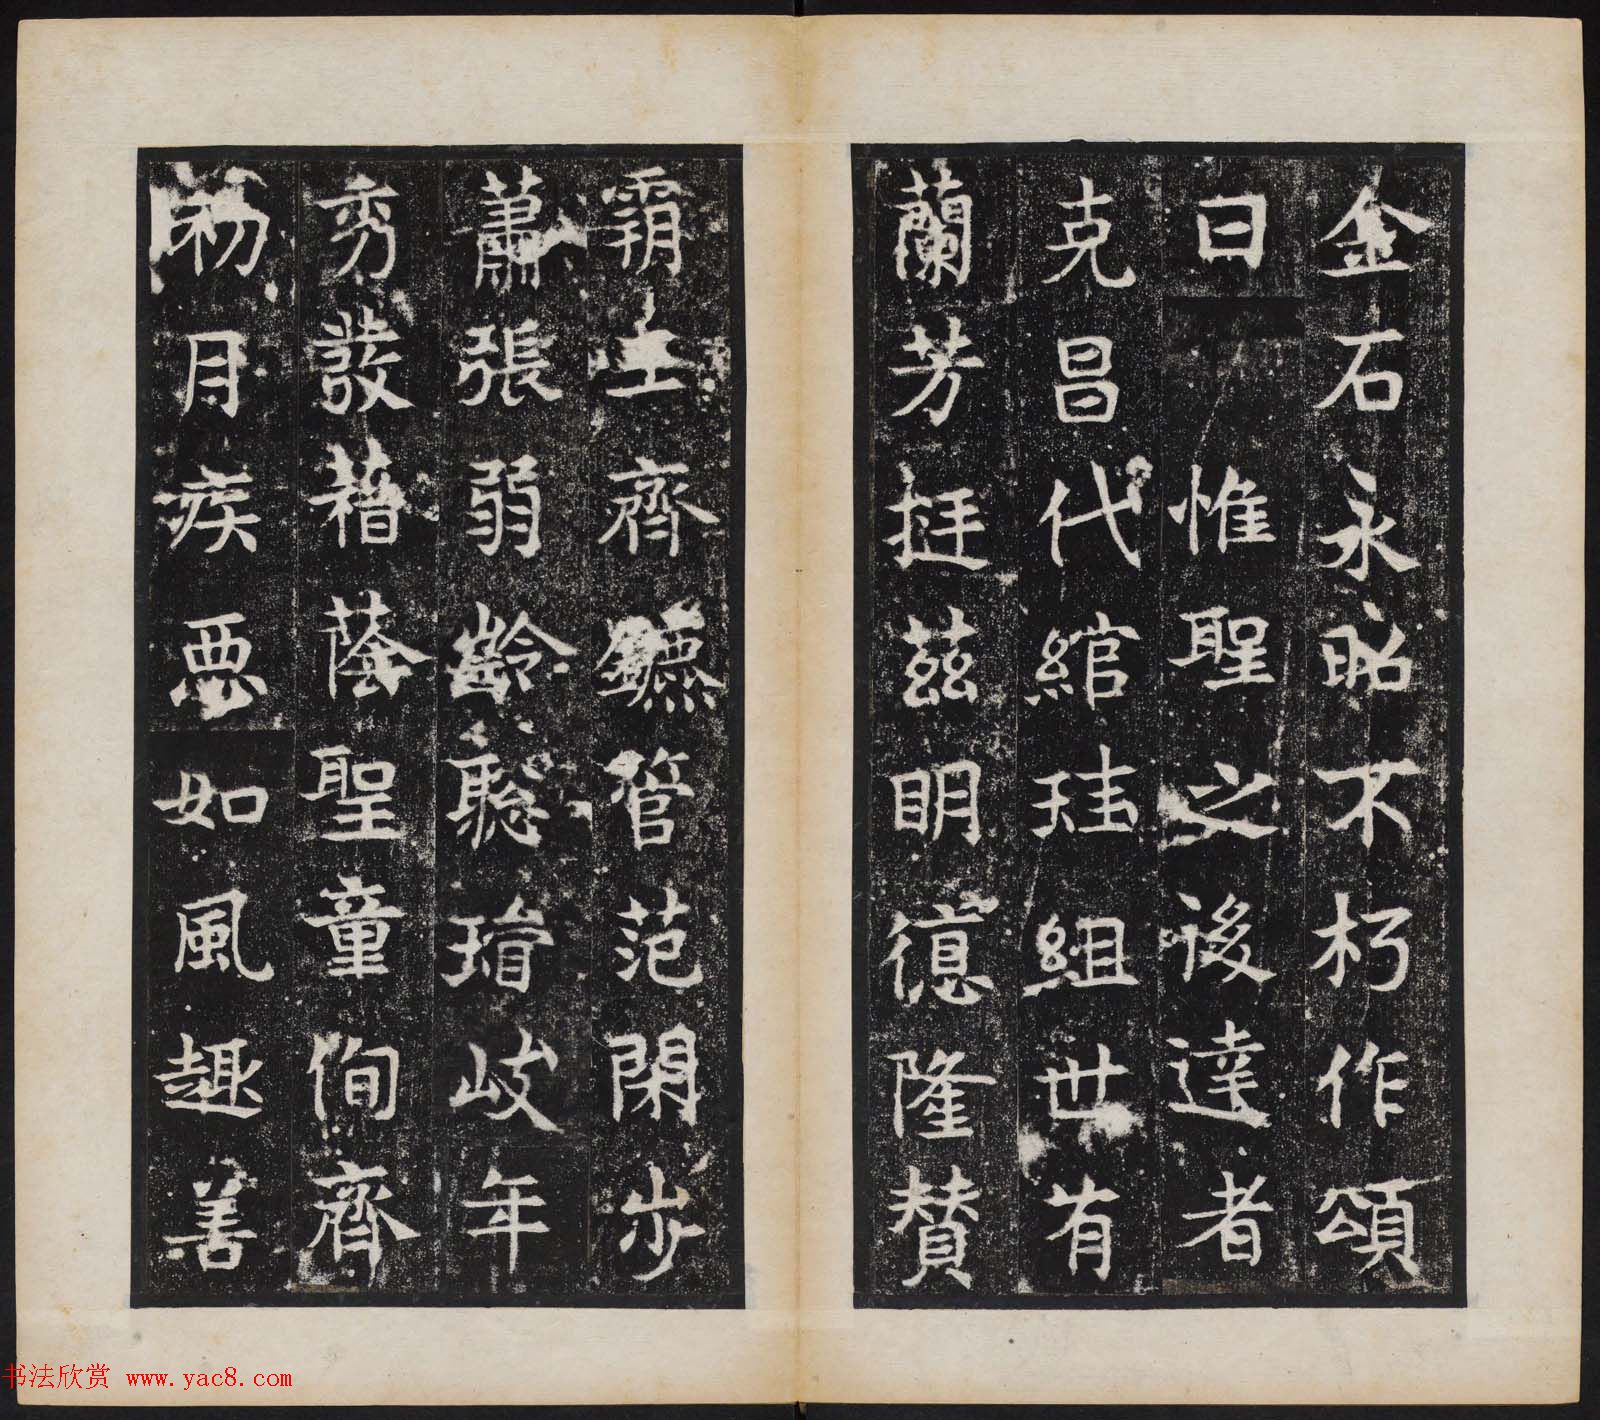 金石永昭不朽作頌
曰惟聖之後達者
克昌代綰珪組世有
蘭芳挺茲明德隆贊
霸圡齊鑣管范閑步
蕭張弱齡聡瑨岐年
秀發藉蔭聖童侚齊
初月疾惡如風趣善
书法欣赏 www.yac8.com